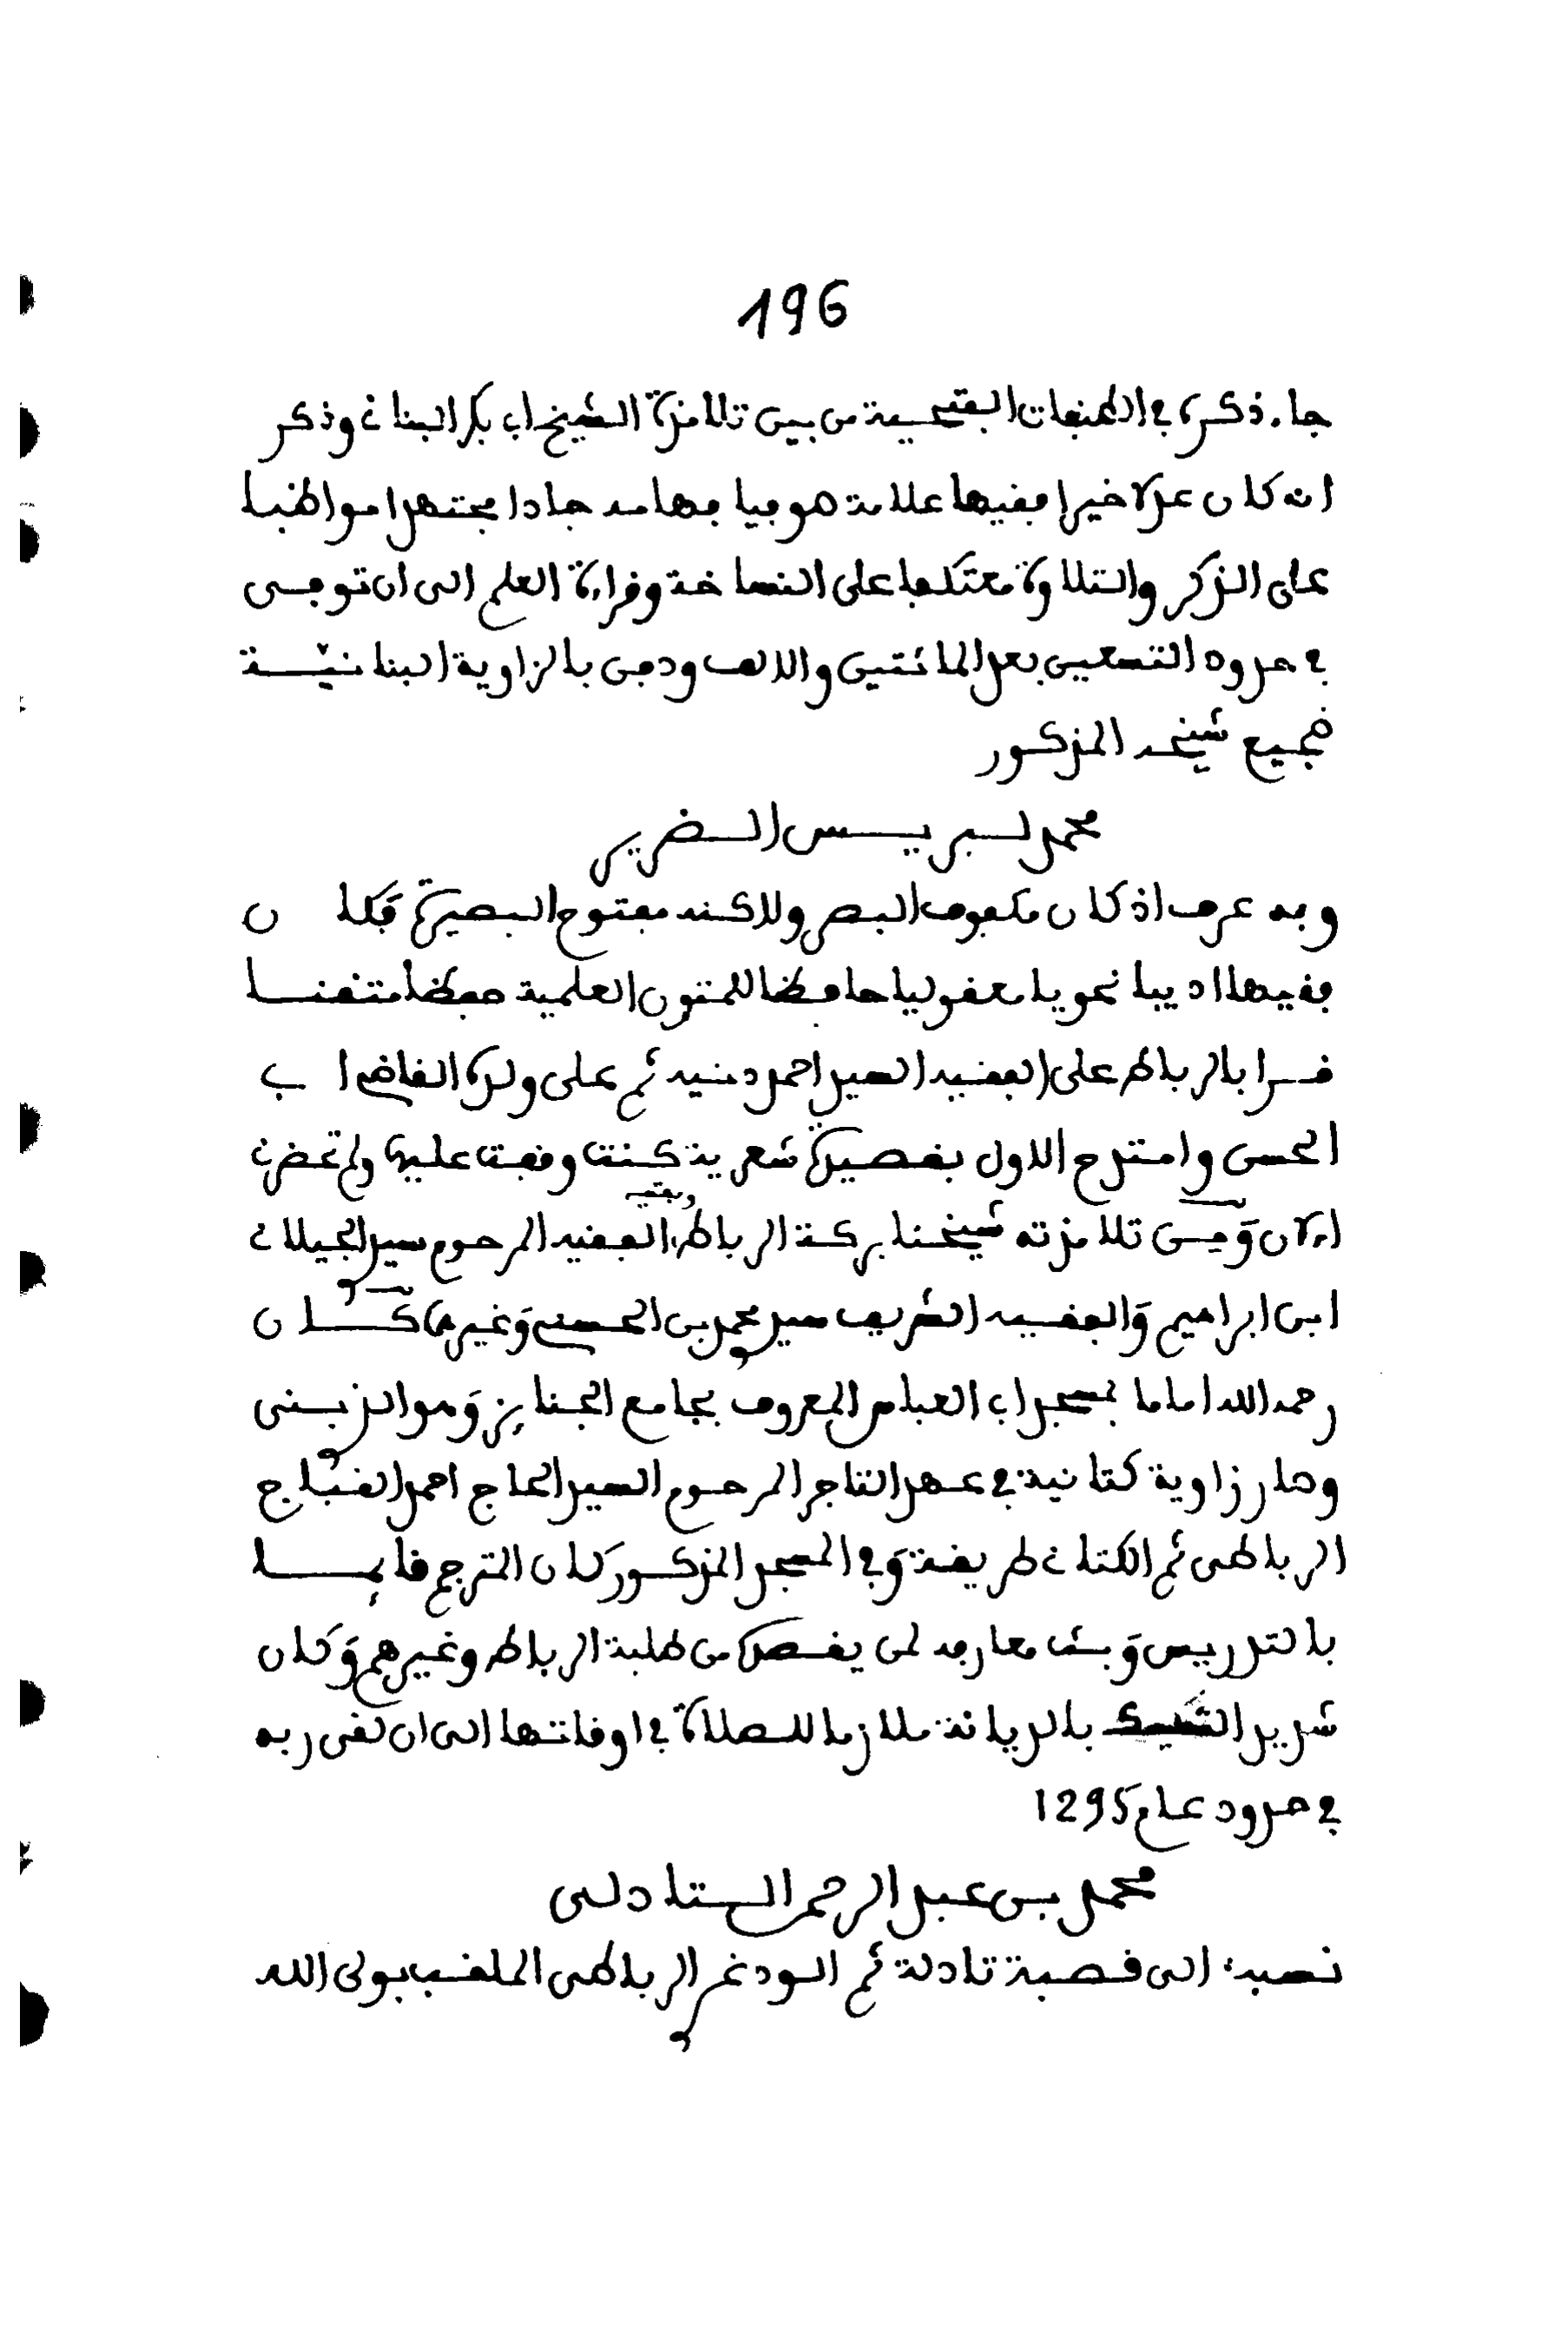 196
جاء ذكره في الطبقات الفتحية من بين تلامذة الشيخ ابي بكر البناني وذكر
انه كان عدلا خيرا فقيها علامة صوفيا فهامه جادا مجتهدا مواظبا
على الذكر والتلاوة معتكفا على النساخة وقراءة العلم الى ان توفى
في حدود التسعين بعد المائتين والالف ودفن بالزاوية البنانيّة
ضجيع شيخه المذكور
محمد لبريس الضرير
وبه عرف اذ كان مكفوف البصر ولاكنه مفتوح البصيرة فكان
فقيها اديبا نحويا معقوليا حافظا للمتون العلمية حفظا متقنا
قرا بالرباط على الفقيه السيد احمد دنيه ثم على ولده القاضي ابي
الحسن وامتدح الاول بقصيدة شعرية كنت وقفت عليها ولم تحضرني
الان وَمِن تلامذته شيخنا بركة الرباط وبقيته الفقيه المرحوم سيدي الجيلاني
ابن ابراهيم وَالفقيه الشريف سيدي محمد بن الحسني وَغيرهما كان
رحمه الله اماما بمسجد ابي العباس المعروف بجامع الجنايز وَهو الذي بنى
وصار زاوية كتانية في عهد التاجر المرحوم السيد الحاج احمد القبّاج
الرباطى ثم الكتاني طريقة وَفي المسجد المذكور كان المترجم قايما
بالتدريس وَبث معارفه لمن يقصده من طلبة الرباط وغيرهم وَكان
شديد التمسك بالديانة ملازما للصلاة في اوقاتها الى ان لقى ربه
في حدود عام 1295
محمد بن عبد الرحمن التادلى
نسبه الى قصبة تادلة ثم الودغيري الرباطى الملقب بولى الله